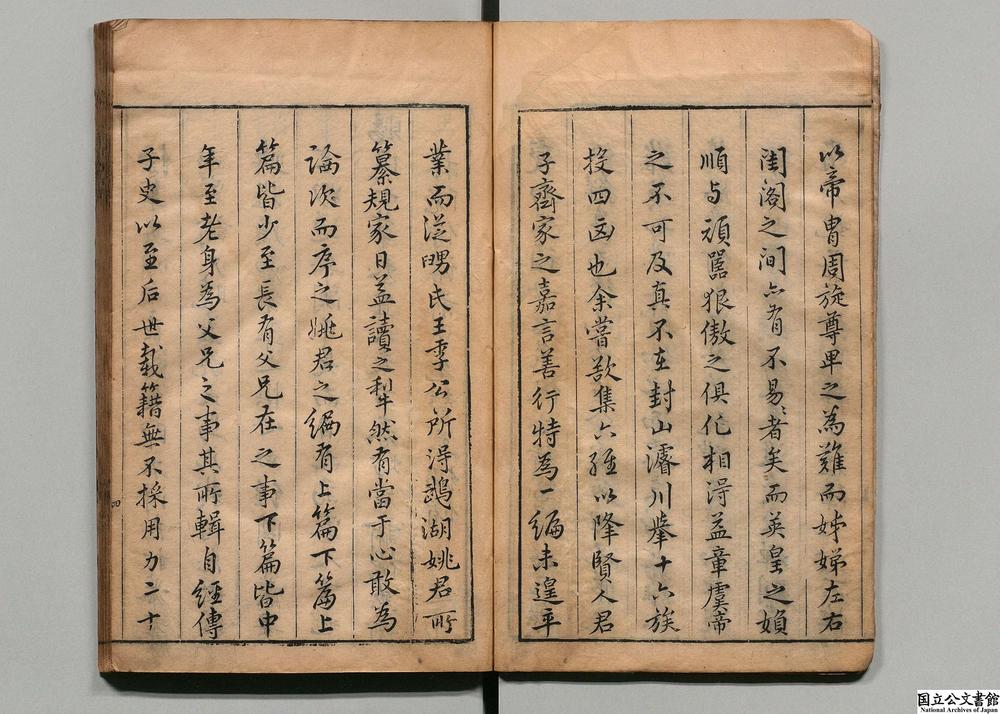 以帝胄周旋尊卑之為難而姊娣左右
閨閣之間亦有不易々者矣而英皇之嬪
順与頑嚚狠傲之俱化相得益章虞帝
之不可及真不在封山濬川舉十六族
投四凶也余嘗欲集六經以降賢人君
子齊家之嘉言善行特為一編未遑卒
業而從甥氏王季公所得鵡湖姚君所
纂規家日益讀之犁然有當于心敢為
論次而序之姚君之編有上篇下篇上
篇皆少至長有父兄在之事下篇皆中
年至老身為父兄之事其所輯自經傳
子史以至后世載籍無不採用力二十
四
国立公文書館
National Archives of Japan